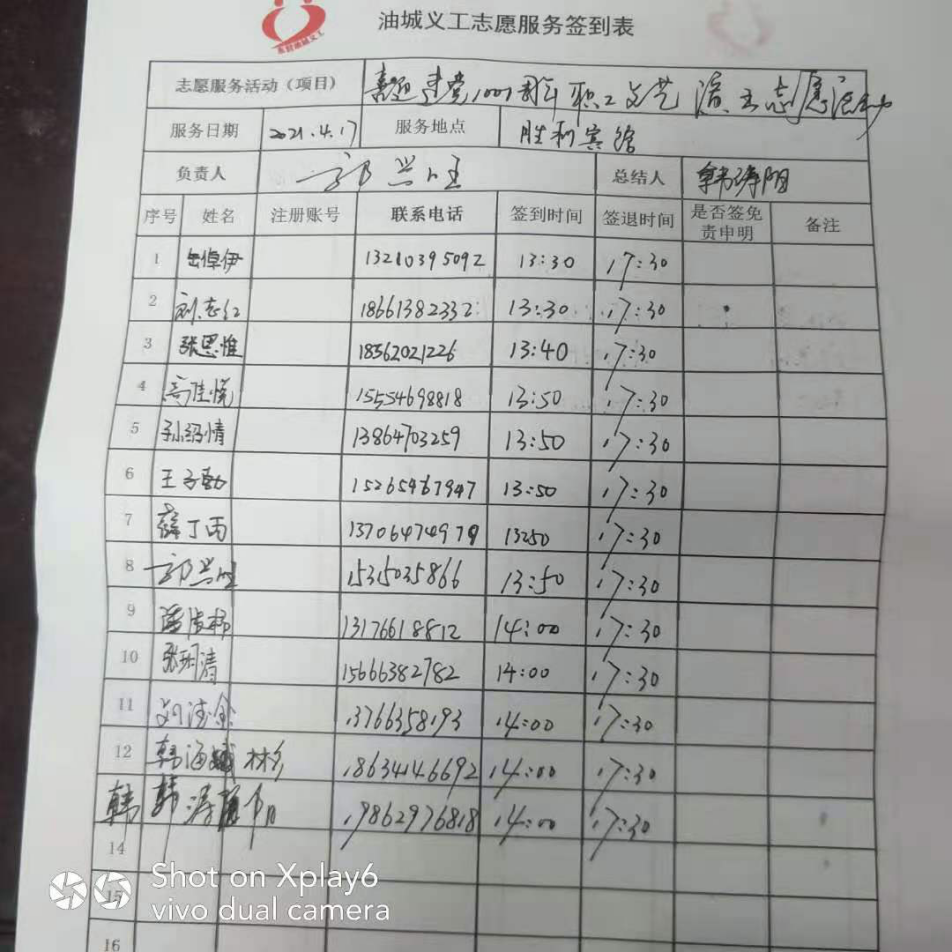 油城义工志愿服务签到表
志愿服务活动（项目） 喜迎建党100周年职工文艺演出志愿活动
服务日期 2021.4.17 服务地点 胜利宾馆
负责人 郭兴旺 总结人 韩涛阳
序号 姓名 注册账号 联系电话 签到时间 签退时间 是否签免责申明 备注
1 岳倬伊 13210395092 13:30 17:30
2 刘志红 18661382332 13:30 17:30
3 张思惟 18562021226 13:40 17:30
4 高佳悦 15554698818 13:50 17:30
5 孙绍情 13864703259 13:50 17:30
6 王子勤 15265467947 13:50 17:30
7 薛丁丙 13706474979 1350 17:30
8 郭兴旺 15315035866 13:50 17:30
9 13176618812 14:00 17:30
10 张玥清 15666382782 14:00 17:30
11 13766358193 14:00 17:30
12 韩海彬 18634146692 14:00 17:30
韩 韩涛阳 19862976818 14:00 17:30
14
15
16
Shot on Xplay6
vivo dual camera